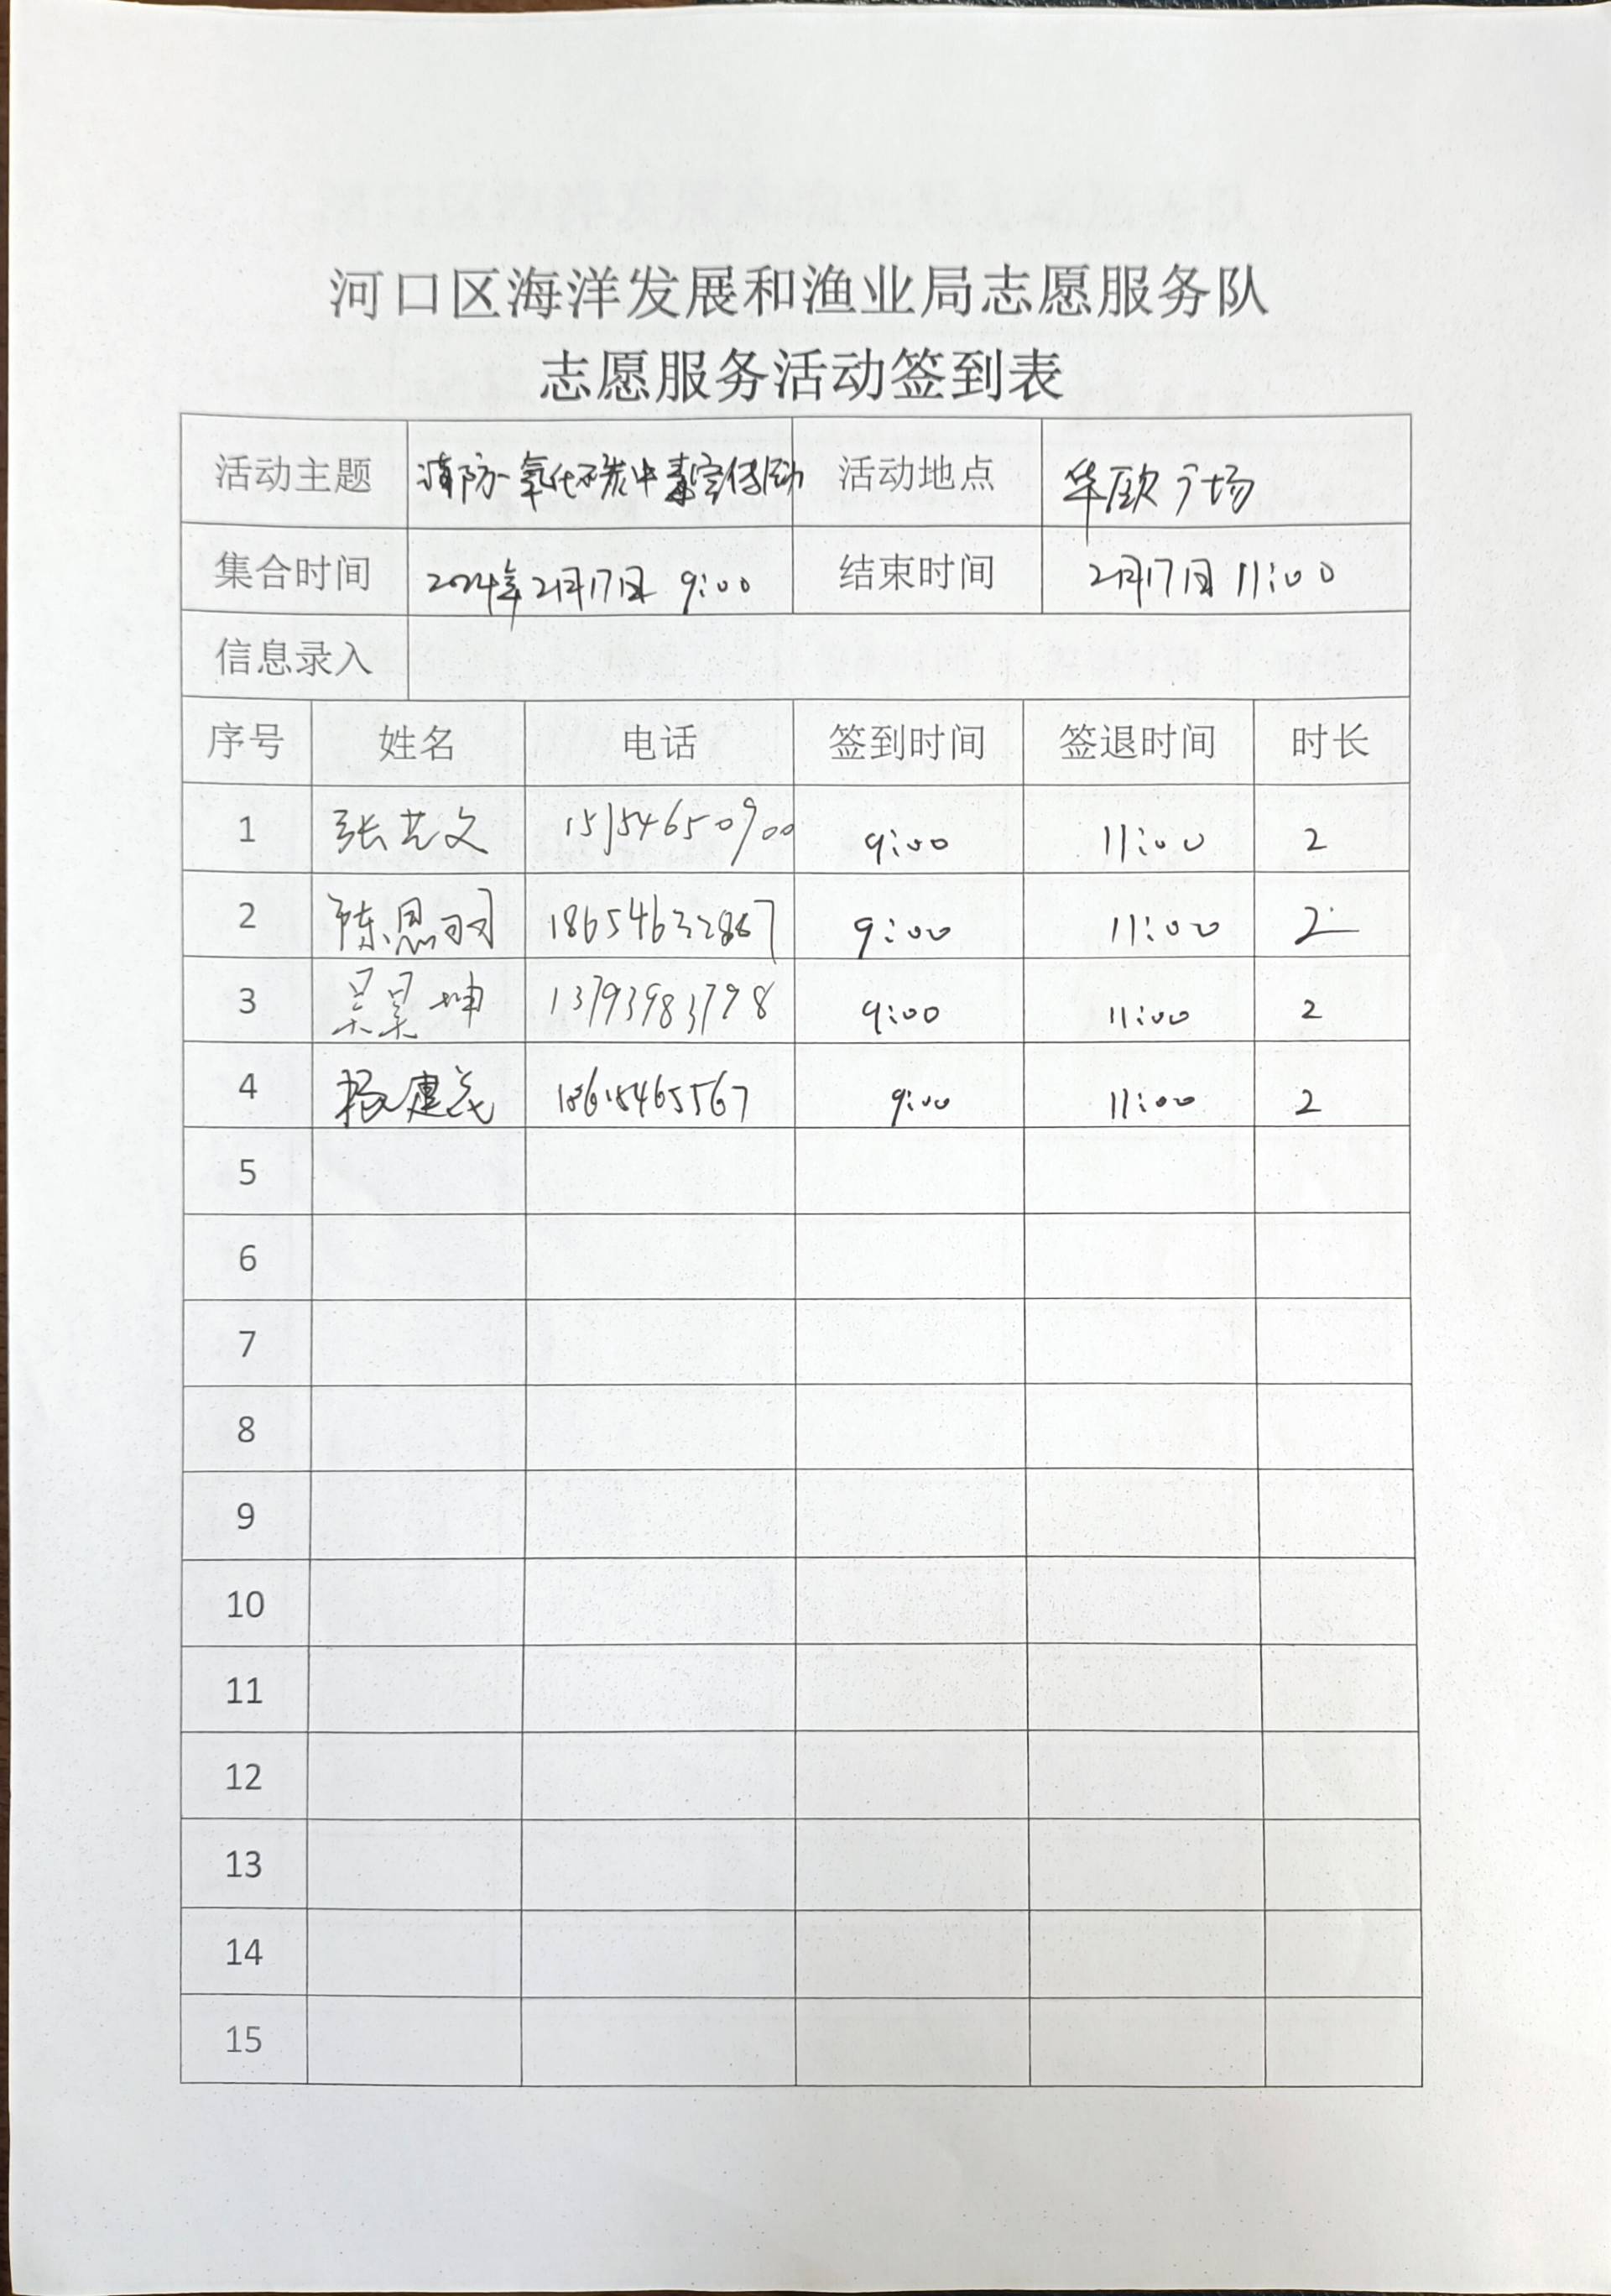 河口区海洋发展和渔业局志愿服务队
志愿服务活动签到表
活动主题 消防一氧化碳中毒宣传活动 活动地点 华欧广场
集合时间 2024年2月17日 9:00 结束时间 2月17日 11:00
信息录入
序号 姓名 电话 签到时间 签退时间 时长
1 张艺文 15154650900 9:00 11:00 2
2 陈思羽 18654632887 9:00 11:00 2
3 吴昊坤 13793983798 9:00 11:00 2
4 杨建茂 18615465567 9:00 11:00 2
5
6
7
8
9
10
11
12
13
14
15